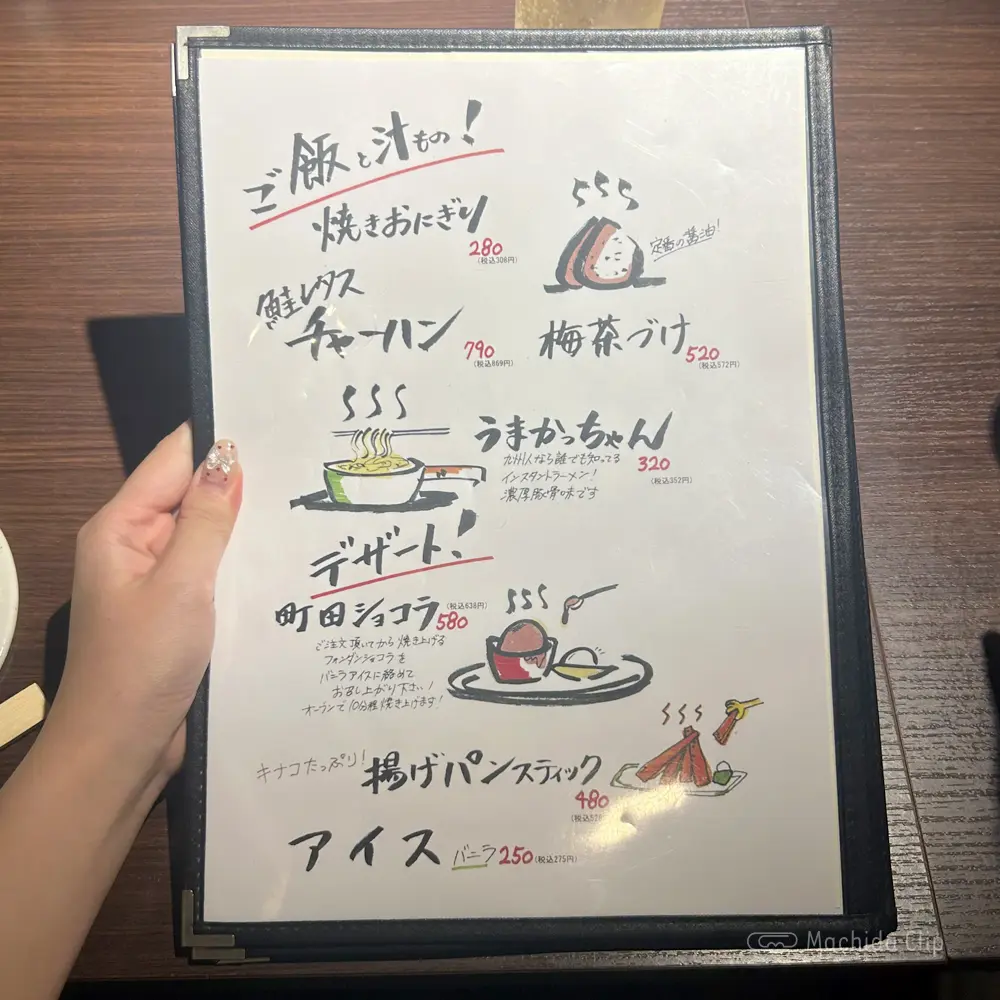 ご飯と汁もの!
焼きおにぎり
280
(税込308円)
定番の醤油!
鮭レタス
チャーハン
790
(税込869円)
梅茶づけ
520
(税込572円)
うまかっちゃん
320
(税込352円)
九州人なら誰でも知ってる
インスタントラーメン!
濃厚豚骨味です
デザート!
町田ショコラ
(税込638円)
580
ご注文頂いてから焼き上げる
フォンダンショコラを
バニラアイスに絡めて
お召し上がり下さい!
オーブンで10分程焼き上げます!
キナコたっぷり!
揚げパンスティック
480
(税込528
アイス
バニラ
250
(税込275円)
Machida Clip